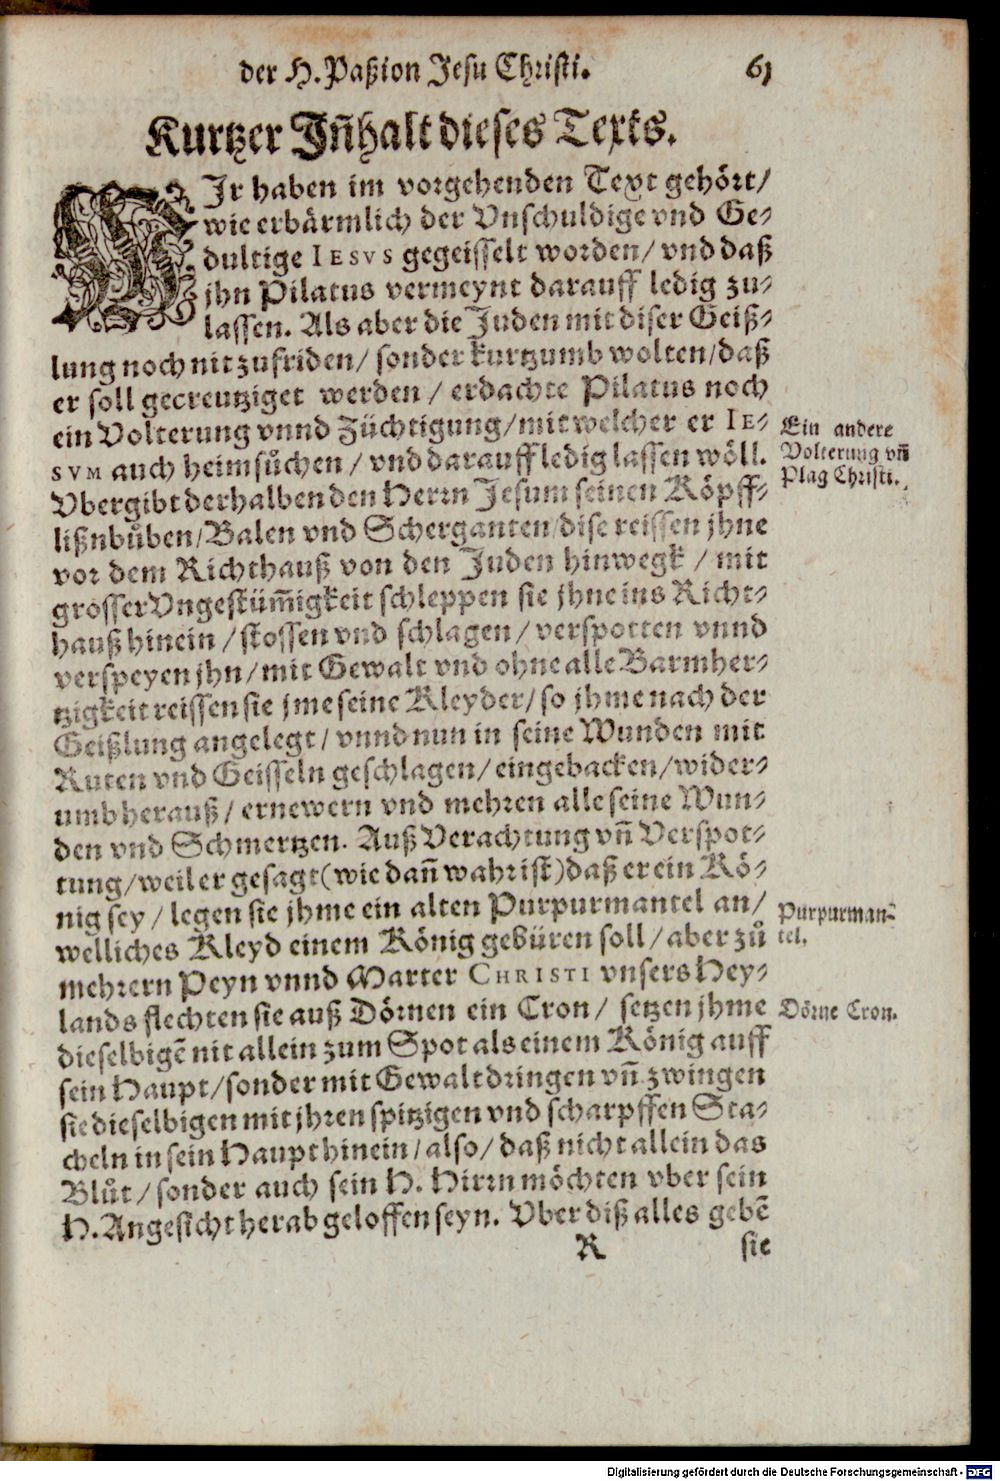 der H. Paßion Jesu Christi. 61
Kurtzer Iñhalt dieses Texts.
WJr haben im vorgehenden Text gehört/
wie erbärmlich der Vnschuldige vnd Ge-
dultige IESVS gegeisselt worden/ vnd daß
jhn Pilatus vermeynt darauff ledig zu-
lassen. Als aber die Juden mit diser Geiß-
lung noch nit zufriden/ sonder kurtzumb wolten/ daß
er soll gecreutziget werden/ erdachte Pilatus noch
ein Volterung vnnd Züchtigung/ mit welcher er IE-
SVM auch heimsůchen/ vnd darauff ledig lassen wöll.
Ein andere
Volterung vñ
Plag Christi.
Vbergibt derhalben den Herrn Jesum seinen Köpff-
lißnbůben/ Balen vnd Scherganten/ dise reissen jhne
vor dem Richthauß von den Juden hinwegk/ mit
grosser Vngestüm̃igkeit schleppen sie jhne ins Richt-
hauß hinein/ stossen vnd schlagen/ verspotten vnnd
verspeyen jhn/ mit Gewalt vnd ohne alle Barmher-
tzigkeit reissen sie jme seine Kleyder/ so jhme nach der
Geißlung angelegt/ vnnd nun in seine Wunden mit
Ruten vnd Geisseln geschlagen/ eingebacken/ wider-
umb herauß/ ernewern vnd mehren alle seine Wun-
den vnd Schmertzen. Auß Verachtung vñ Verspot-
tung/ weil er gesagt (wie dañ wahr ist) daß er ein Kö-
nig sey/ legen sie jhme ein alten Purpurmantel an/
welliches Kleyd einem König gebüren soll/ aber zů
Purpurman-
tel.
mehrern Peyn vnnd Marter CHRISTI vnsers Hey-
lands flechten sie auß Dörnen ein Cron/ setzen jhme
Dörne Cron.
dieselbigẽ nit allein zum Spot als einem König auff
sein Haupt/ sonder mit Gewalt dringen vñ zwingen
sie dieselbigen mit jhren spitzigen vnd scharpffen Sta-
cheln in sein Haupt hinein/ also/ daß nicht allein das
Blůt/ sonder auch sein H. Hirrn möchten vber sein
H. Angesicht herab geloffen seyn. Vber diß alles gebẽ
R sie
Digitalisierung gefördert durch die Deutsche Forschungsgemeinschaft - DFG